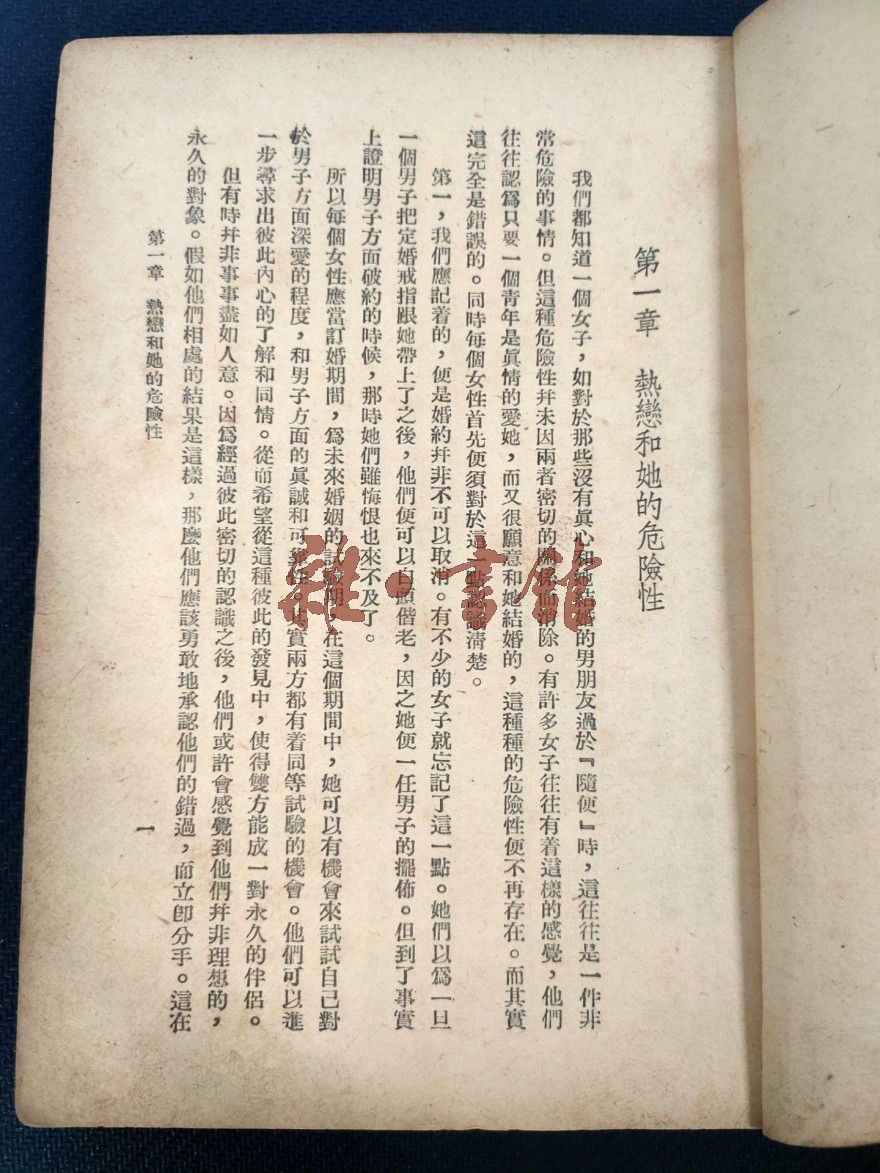 第一章　熱戀和她的危險性
我們都知道一個女子，如對於那些沒有眞心和她結婚的男朋友過於『隨便』時，這往往是一件非
常危險的事情。但這種危險性幷未因兩者密切的關係而消除。有許多女子往往有着這樣的感覺，他們
往往認爲只要一個靑年是眞情的愛她，而又很願意和她結婚的，這種種的危險性便不再存在。而其實
這完全是錯誤的。同時每個女性首先便須對於這一點認識淸楚。
第一，我們應記着的，便是婚約幷非不可以取消。有不少的女子就忘記了這一點。她們以爲一旦
一個男子把定婚戒指跟她帶上了之後，他們便可以白頭偕老，因之她便一任男子的擺佈。但到了事實
上證明男子方面破約的時候，那時她們雖悔恨也來不及了。
所以每個女性應當訂婚期間，爲未來婚姻的試驗期，在這個期間中，她可以有機會來試試自己對
於男子方面深愛的程度，和男子方面的眞誠和可靠性。其實兩方都有着同等試驗的機會。他們可以進
一步尋求出彼此內心的了解和同情。從而希望從這種彼此的發見中，使得雙方能成一對永久的伴侶。
但有時幷非事事盡如人意。因爲經過彼此密切的認識之後，他們或許會感覺到他們幷非理想的，
永久的對象。假如他們相處的結果是這樣，那麼他們應該勇敢地承認他們的錯過，而立卽分手。這在
第一章　熱戀和她的危險性
一
雜·書館